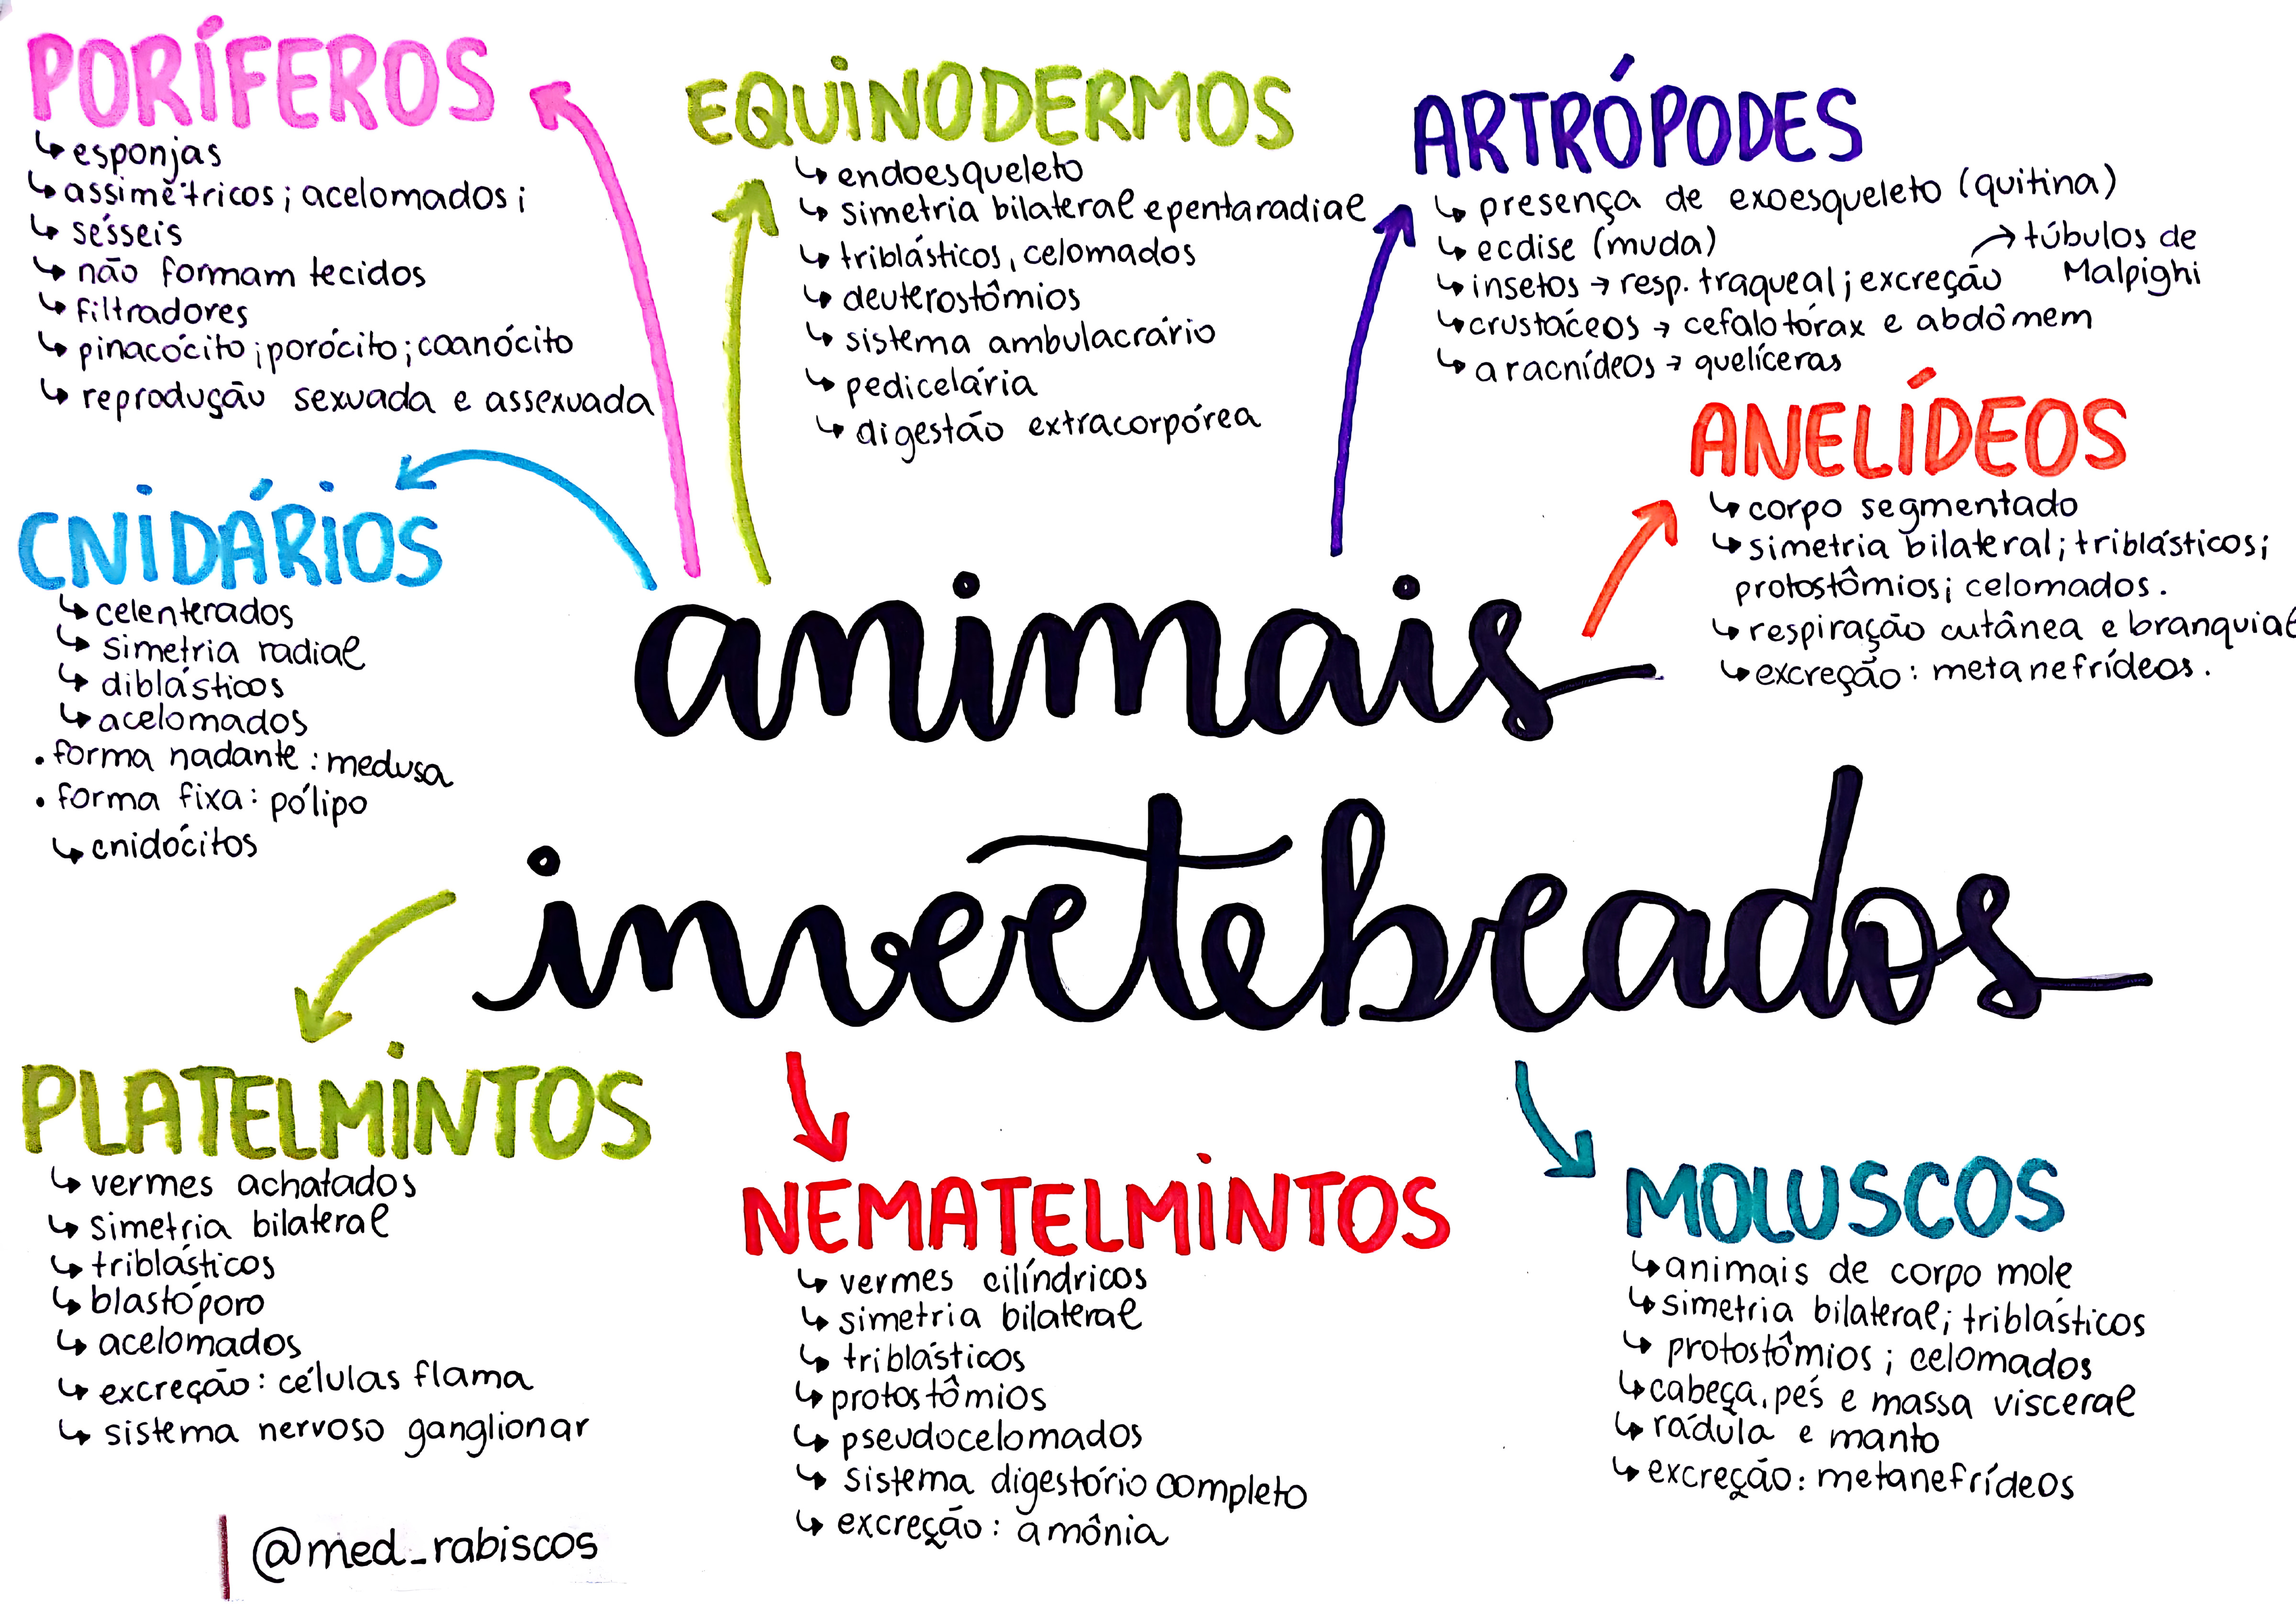 PORÍFEROS
↳ esponjas
↳ assimétricos; acelomados;
↳ sésseis
↳ não formam tecidos
↳ filtradores
↳ pinacócito; porócito; coanócito
↳ reprodução sexuada e assexuada
EQUINODERMOS
↳ endoesqueleto
↳ simetria bilateral e pentaradial
↳ triblásticos, celomados
↳ deuterostômios
↳ sistema ambulacrário
↳ pedicelária
↳ digestão extracorpórea
ARTRÓPODES
↳ presença de exoesqueleto (quitina)
↳ ecdise (muda)
↳ insetos → resp. traqueal; excreção → túbulos de
Malpighi
↳ crustáceos → cefalotórax e abdômem
↳ aracnídeos → quelíceras
ANELÍDEOS
↳ corpo segmentado
↳ simetria bilateral; triblásticos;
protostômios; celomados.
↳ respiração cutânea e branquial
↳ excreção: metanefrídeos.
CNIDÁRIOS
↳ celenterados
↳ simetria radial
↳ diblásticos
↳ acelomados
• forma nadante: medusa
• forma fixa: pólipo
↳ cnidócitos
animais
invertebrados
PLATELMINTOS
↳ vermes achatados
↳ simetria bilateral
↳ triblásticos
↳ blastóporo
↳ acelomados
↳ excreção: células flama
↳ sistema nervoso ganglionar
NEMATELMINTOS
↳ vermes cilíndricos
↳ simetria bilateral
↳ triblásticos
↳ protostômios
↳ pseudocelomados
↳ sistema digestório completo
↳ excreção: amônia
MOLUSCOS
↳ animais de corpo mole
↳ simetria bilateral; triblásticos
↳ protostômios; celomados
↳ cabeça, pés e massa visceral
↳ rádula e manto
↳ excreção: metanefrídeos
@med_rabiscos